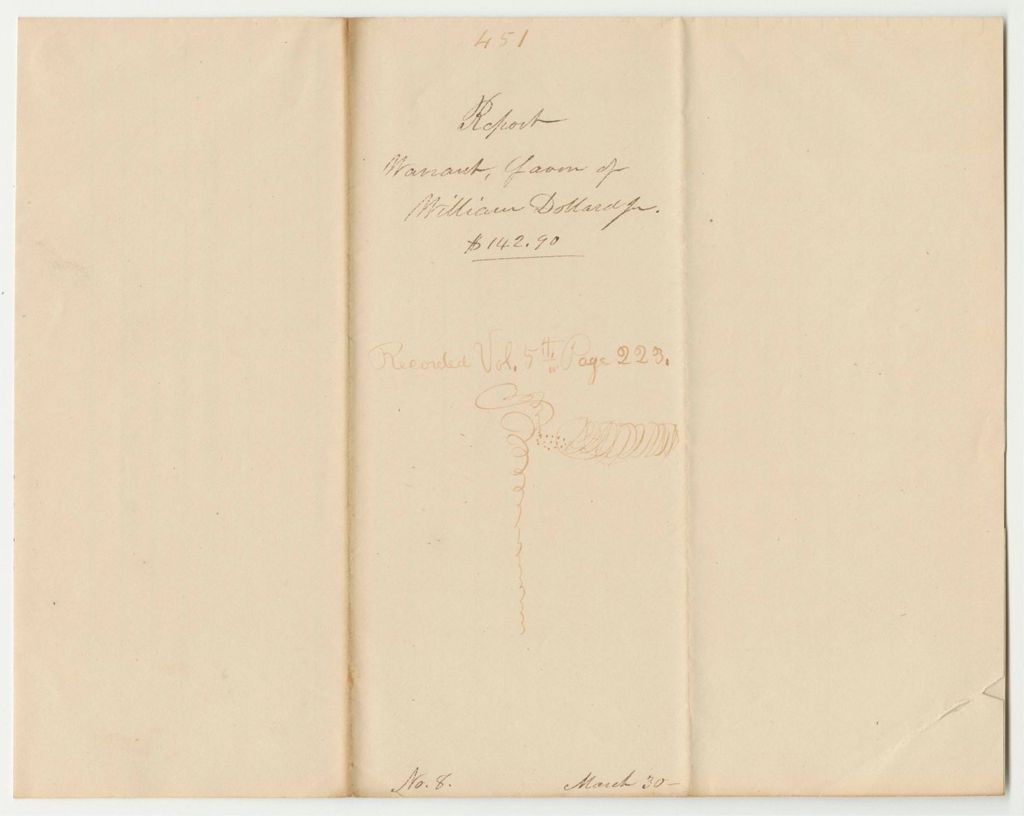 451
Report
Warrant, favor of
William Dollard Jr.
$142.90
Recorded Vol. 5th Page 223.
No. 8.
March 30—